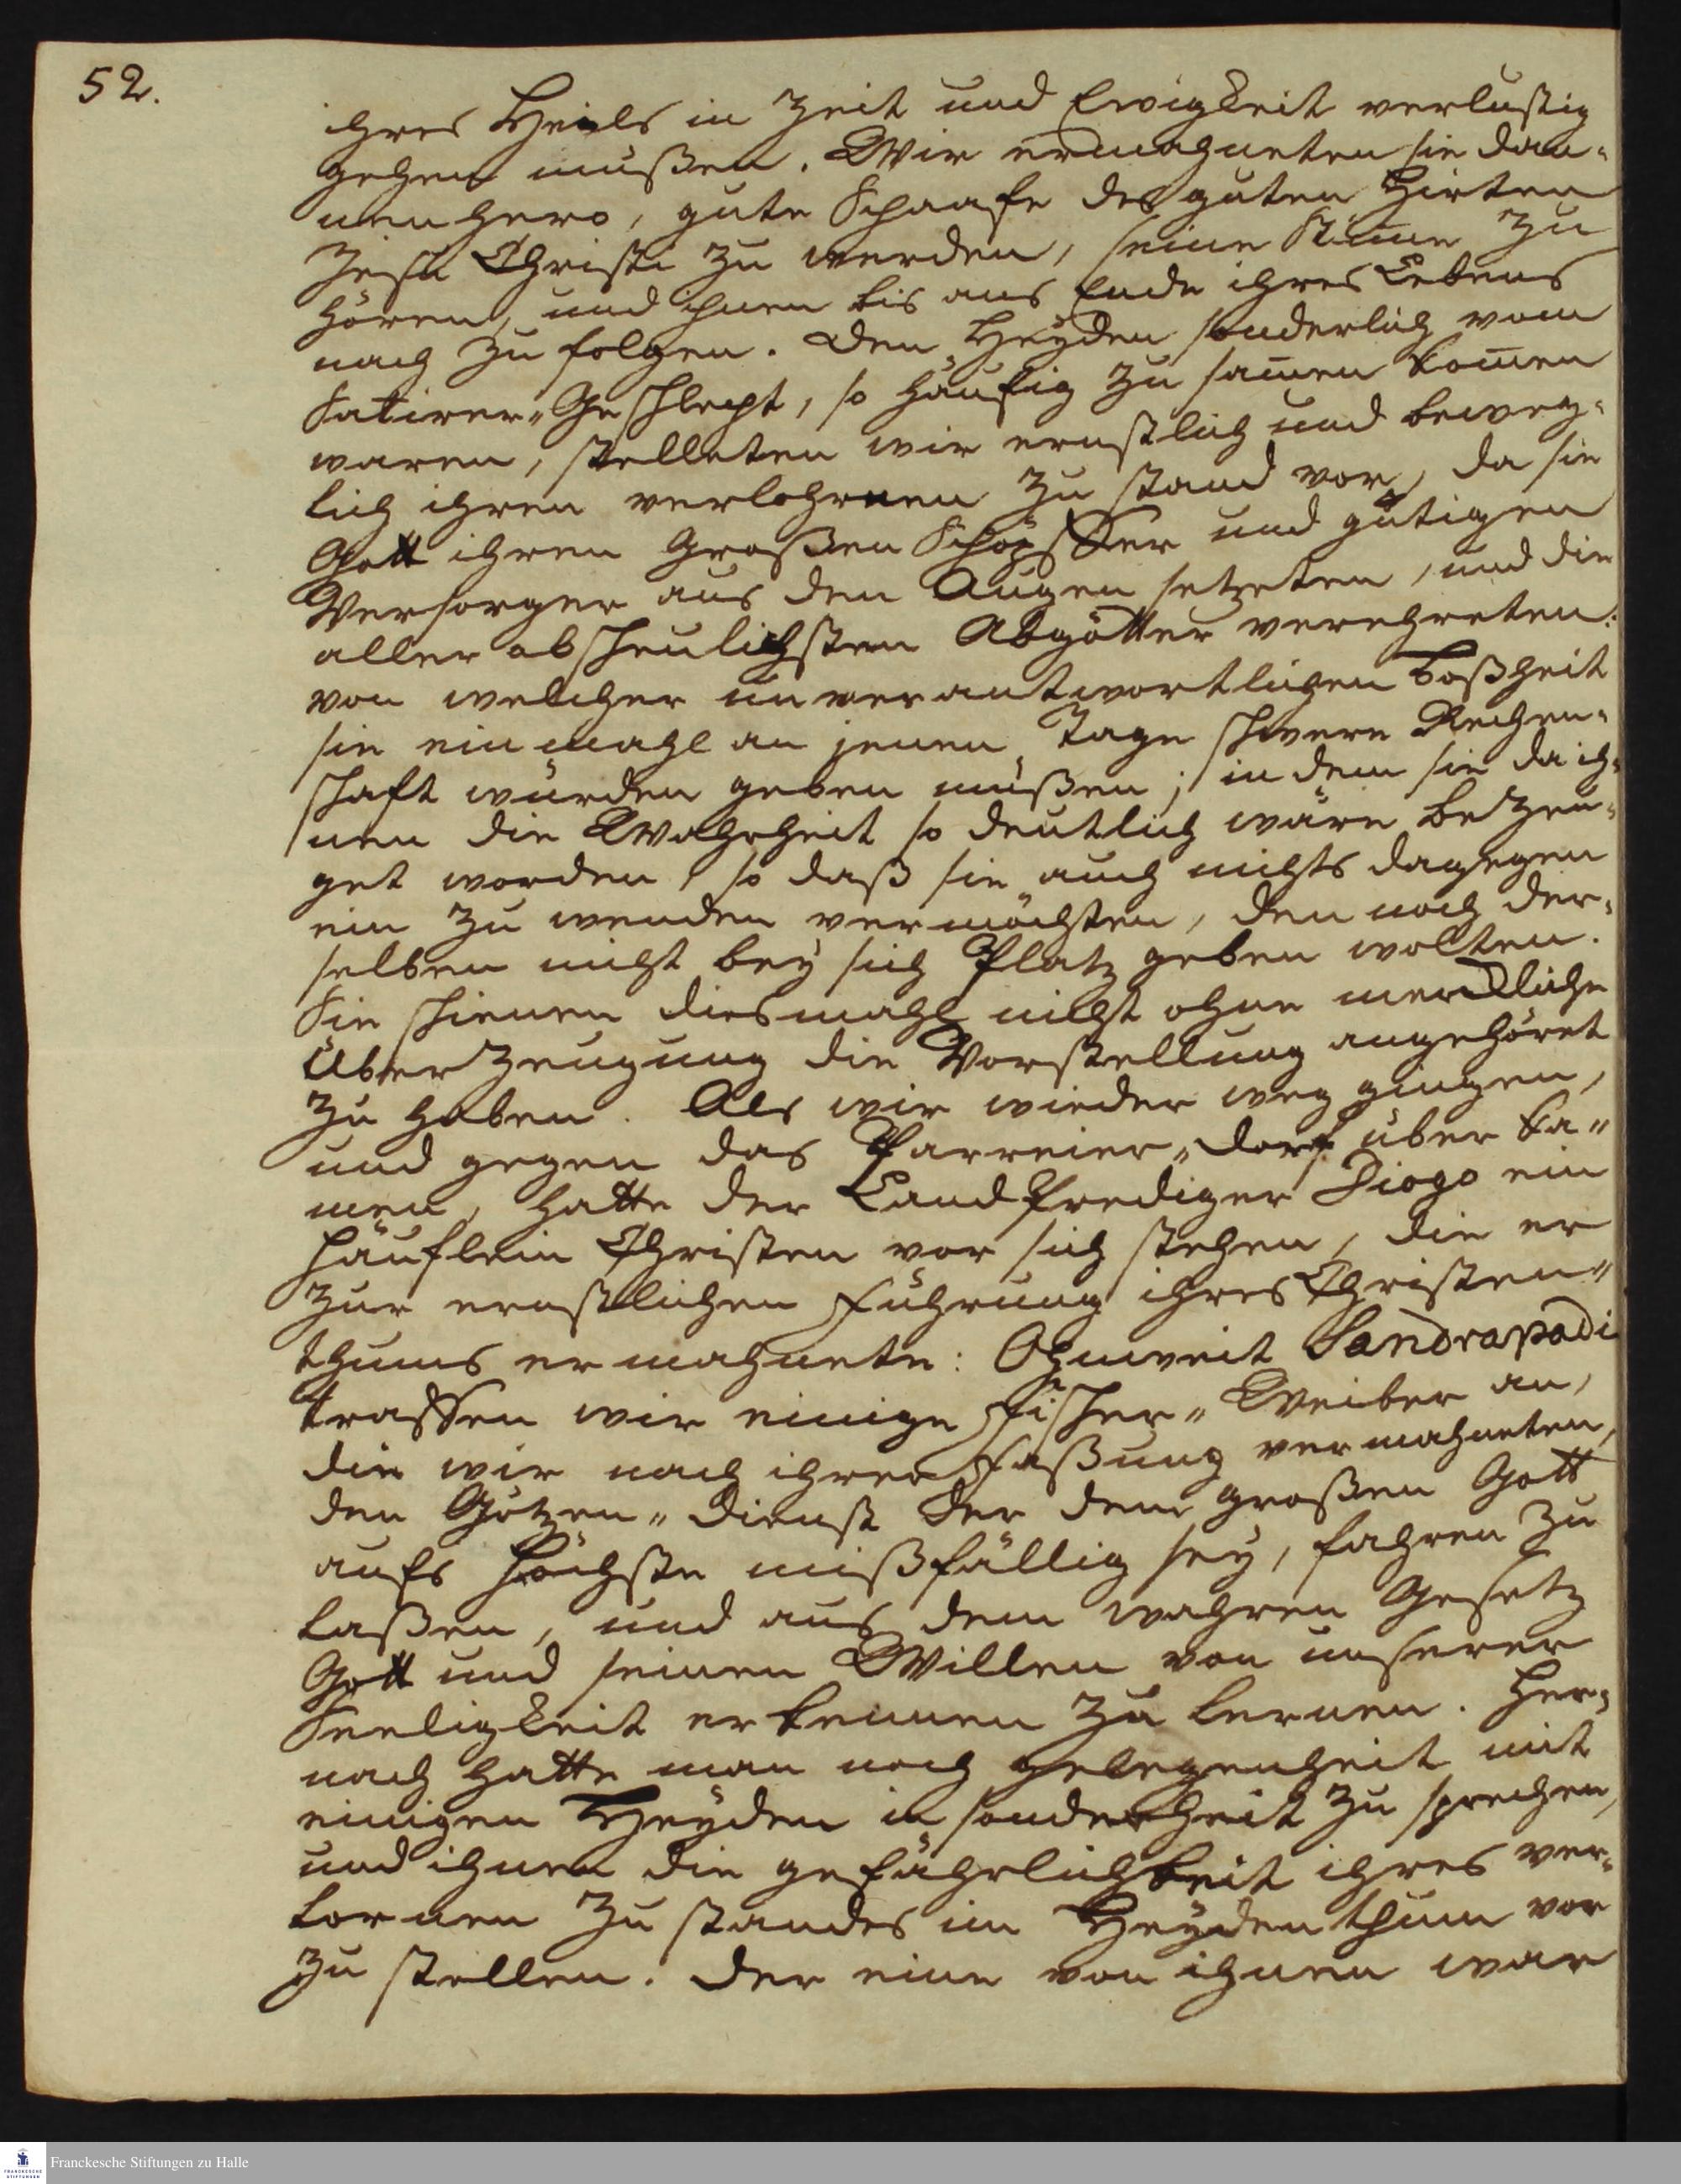 52.
ihres Heils in Zeit und Ewigkeit verlustig
gehen müßen. Wir ermahneten sie dan-
nenhero, gute Schaafe des guten Hirten
Jesu Christi zu werden, seine Stim̄e zu
hören, und ihnen bis ans Ende ihres Lebens
nach zu folgen. Den Heyden sonderlich vom
Satirer-Geschlecht, so häufig zu sam̄en kom̄en
waren, stelleten wir ernstlich und beweg-
lich ihren verlohrnen Zustand vor, da sie
Gott ihren Großen Schöpffer und gütigen
Versorger aus den Augen setzeten, und die
aller abscheulichsten Abgötter verehreten:
von welcher unverantwortlichen Boßheit
sie ein mahl an jenen Tage schwere Rechen-
schaft würden geben müßen; in dem sie da ih-
nen die Wahrheit so deutlich wäre bezeu-
get worden, so daß sie auch nichts dagegen
ein zu wenden vermöchten, den noch der-
selben nicht bey sich Platz geben wolten.
Sie schienen diesmahl nicht ohne merckliche
Überzeugung die Vorstellung angehöret
zu haben. Als wir wieder weg gingen,
und gegen das Parreier-dorf über ka-
men, hatte der Land Prediger Diogo ein
häuflein Christen vor sich stehen, die er
zur ernstlichen Führung ihres Christen-
thums ermahnete: Ohnweit Sandrapadi
traffen wir einige Fischer-Weiber an,
die wir nach ihrer Faßung vermahneten,
den Götzen-dienst der dem großen Gott
aufs höchste mißfällig sey, fahren zu
laßen, und aus dem wahren Gesetz
Gott und seinen Willen von unserer
Seeligkeit erkennen zu lernen. Her-
nach hatte man noch gelegenheit mit
einigen Heyden in sonderheit zu sprechen,
und ihnen die gefährlichkeit ihres ver-
lornen Zustandes im Heydenthum vor
zu stellen. Der eine von ihnen war
Franckesche Stiftungen zu Halle